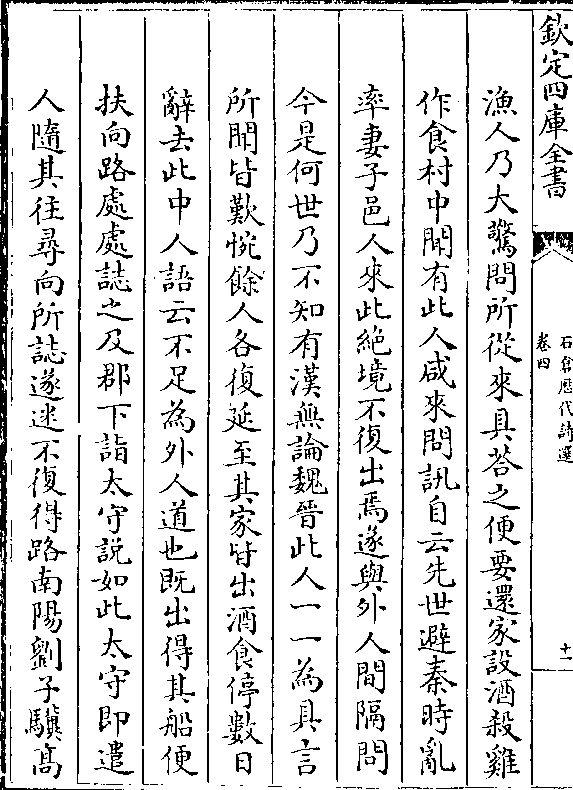 欽定四庫全書
石倉歴代詩選
卷四
十一
漁人乃大驚問所從來具荅之便要還家設酒殺雞
作食村中聞有此人咸來問訊自云先世避秦時亂
率妻子邑人來此絶境不復出焉遂與外人間隔問
今是何世乃不知有漢無論魏晉此人一一為具言
所聞皆歎惋餘人各復延至其家皆出酒食停數日
辭去此中人語云不足為外人道也既出得其船便
扶向路處處誌之及郡下詣太守説如此太守即遣
人隨其往尋向所誌遂迷不復得路南陽劉子驥髙